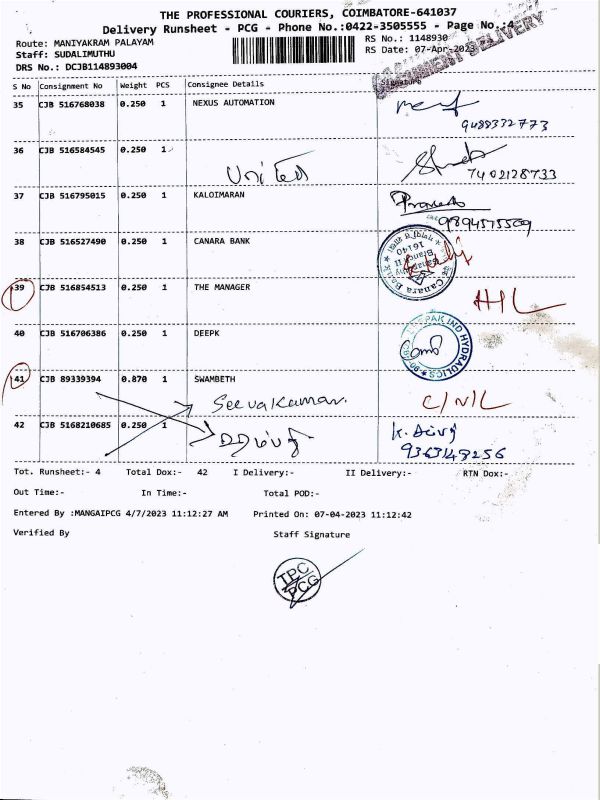 THE PROFESSIONAL COURIERS, COIMBATORE-641037
Delivery Runsheet - PCG - Phone No.:0422-3505555 - Page No.:4
Route: MANIYAKRAM PALAYAM
RS No.: 1148930
Staff: SUDALIMUTHU
RS Date: 07-Apr-2023
DRS No.: DCJB114893004
S No Consignment No Weight PCS Consignee Details Signature
35 CJB 516768038 0.250 1 NEXUS AUTOMATION
9488332773
36 CJB 516584545 0.250 1
United
7402128733
37 CJB 516795015 0.250 1 KALOIMARAN
9894575509
38 CJB 516527490 0.250 1 CANARA BANK
Canara Bank
16140
39 CJB 516854513 0.250 1 THE MANAGER
40 CJB 516706386 0.250 1 DEEPK
DEEPAK IND HYDRAULICS
41 CJB 89339394 0.870 1 SWAMBETH
Seevakumar.
42 CJB 5168210685 0.250 1
9363148256
Tot. Runsheet:- 4 Total Dox:- 42 I Delivery:- II Delivery:- RTN Dox:-
Out Time:- In Time:- Total POD:-
Entered By :MANGAIPCG 4/7/2023 11:12:27 AM Printed On: 07-04-2023 11:12:42
Verified By Staff Signature
TPC
PCG